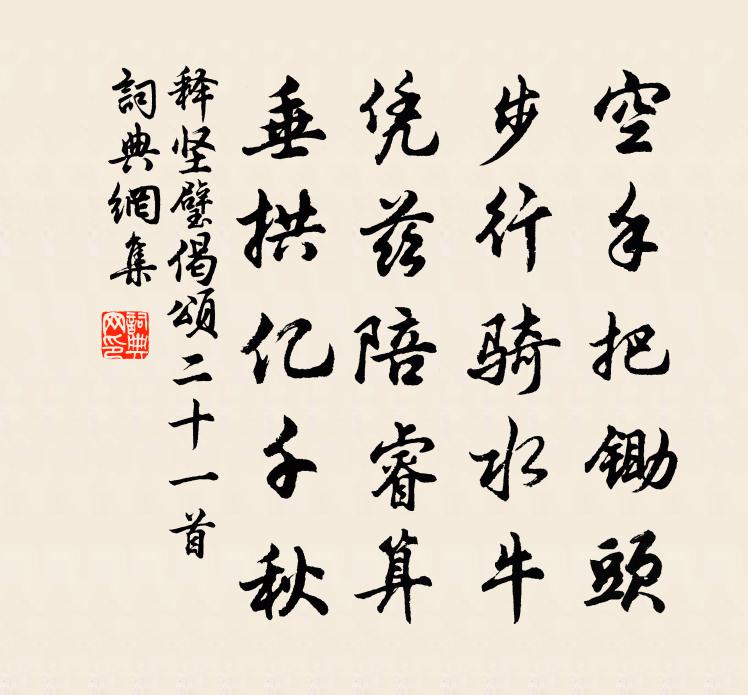 空手把鋤頭
步行骑水牛
凭兹陪睿算
垂拱亿千秋
释坚璧偈頌二十一首
詞典網集
詞典网印